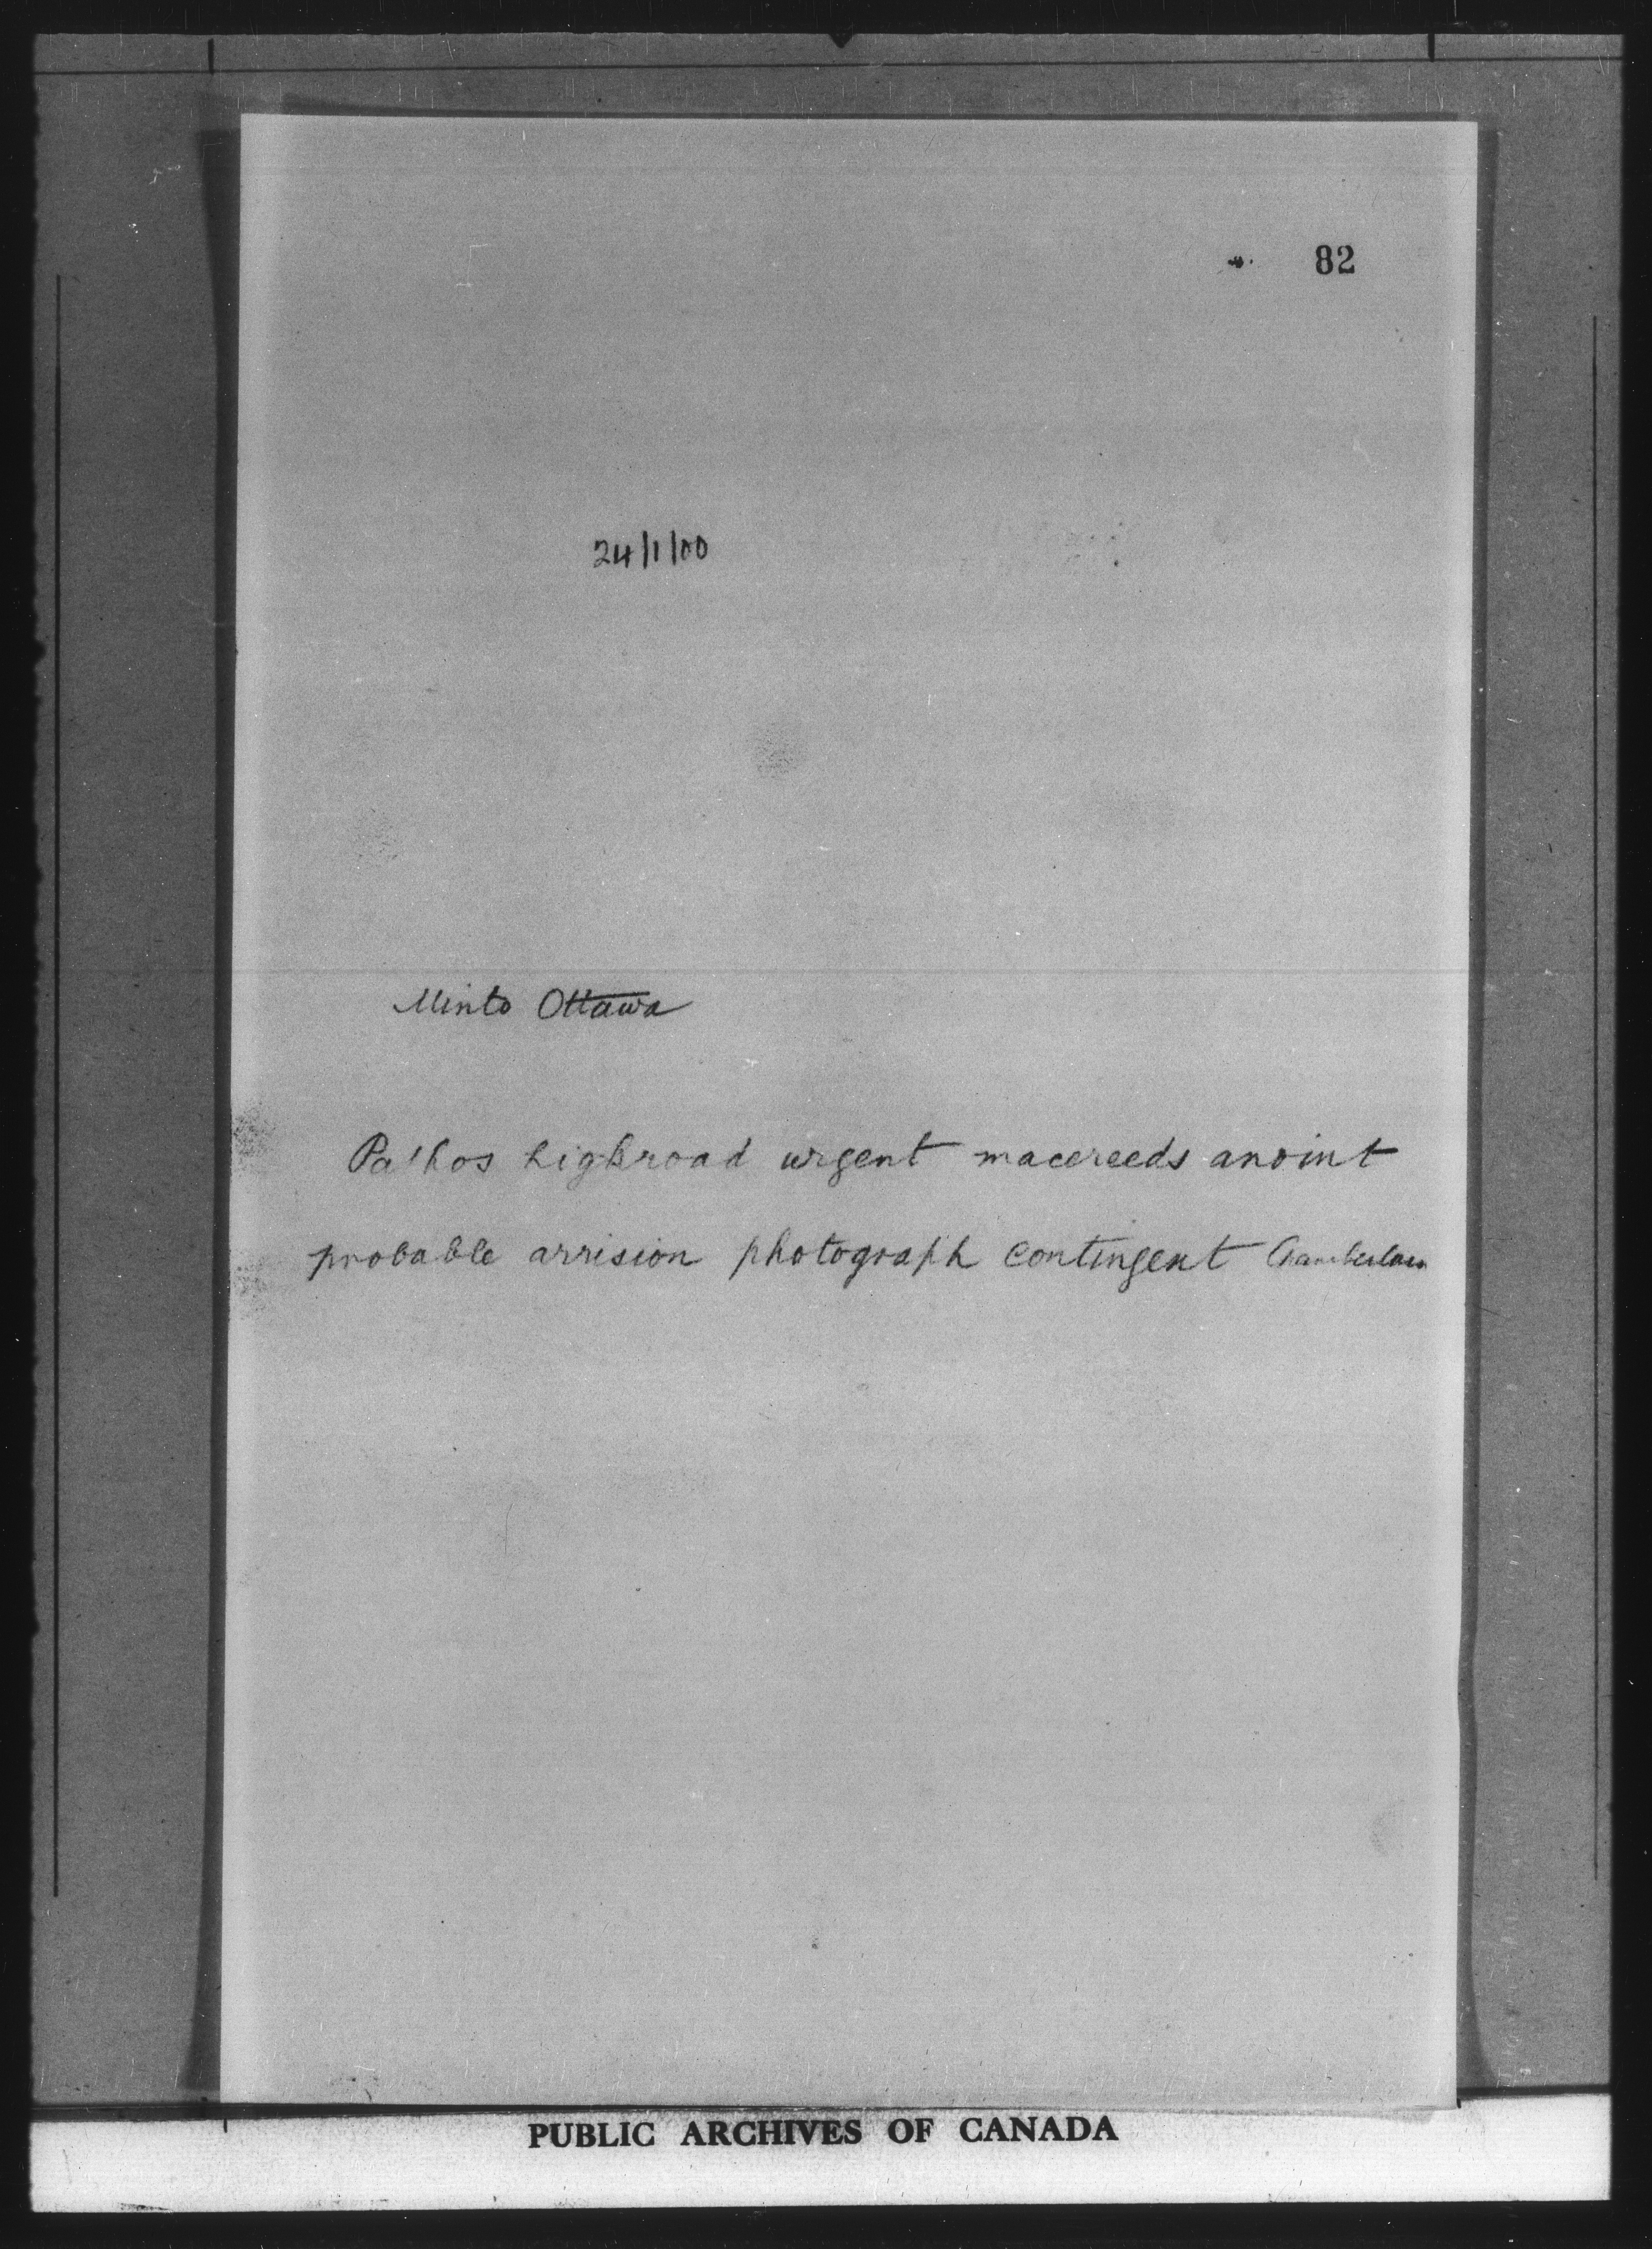 82
24/1/00
Minto Ottawa
Pathos highroad urgent macereeds anoint
probable arrision photograph contingent Chamberlain
PUBLIC ARCHIVES OF CANADA